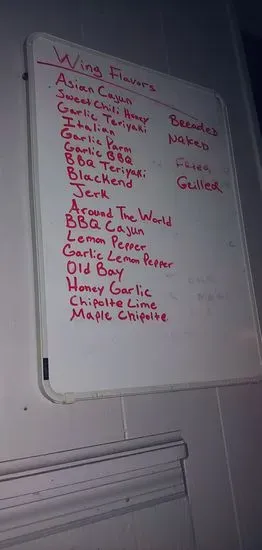 Wing Flavors
Asian Cajun
Sweet Chili Honey
Garlic Teriyaki
Italian
Garlic Parm
Garlic BBQ
BBQ Teriyaki
Blackend
Jerk
Around The World
BBQ Cajun
Lemon Pepper
Garlic Lemon Pepper
Old Bay
Honey Garlic
Chipolte Lime
Maple Chipolte
Breaded
Naked
Fried
Grilled